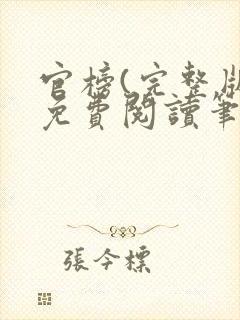 官榜(完整版
免費閱讀筆
張今標